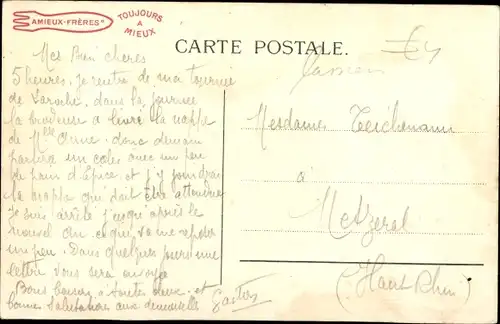 AMIEUX-FRÈRES
TOUJOURS
A
MIEUX
CARTE POSTALE.
Mes Bien chères
5 heures. je rentre de ma tournée
de Laroche, dans la journée
la brodeuse a livré la nappe
de Mlle Anne. donc demain
partira un colis avec un peu
de pain d'Epice et j'y joindrai
la nappe qui doit être attendue
Je suis arrêté jusqu'après le
nouvel an ce qui va me reposer
un peu. Dans quelques jours une
lettre vous sera envoyée
Bons baisers à toutes deux et
bonnes Salutations aux demoiselles Gaston
Mesdames Teichmann
à
Metzeral
(Haut Rhin)